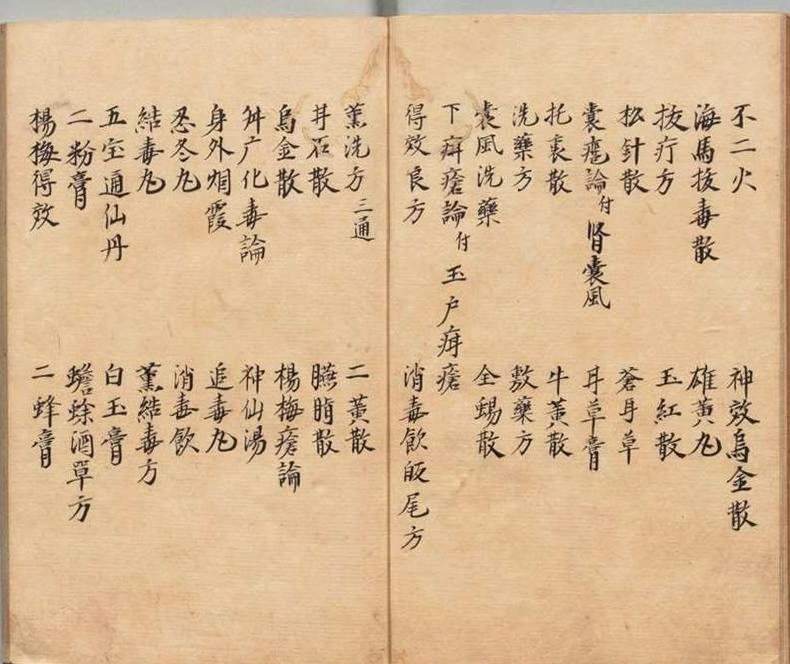 不二火 神效烏金散
海馬拔毒散 雄黃丸
拔疔方 玉紅散
松針散 蒼耳草
囊癰論付腎囊風 耳草膏
托裏散 牛黃散
洗藥方 敷藥方
囊風洗藥 全蝎散
下疳瘡論付玉户疳瘡
得效良方 消毒飲皈尾方
薰洗方三通 二黃散
井石散 臙脂散
烏金散 楊梅瘡論
化毒論 神仙湯
身外烟霞 追毒丸
忍冬丸 消毒飲
結毒丸 薰結毒方
五宝通仙丹 白玉膏
二粉膏 蟾蜍酒單方
楊梅得效 二蜂膏